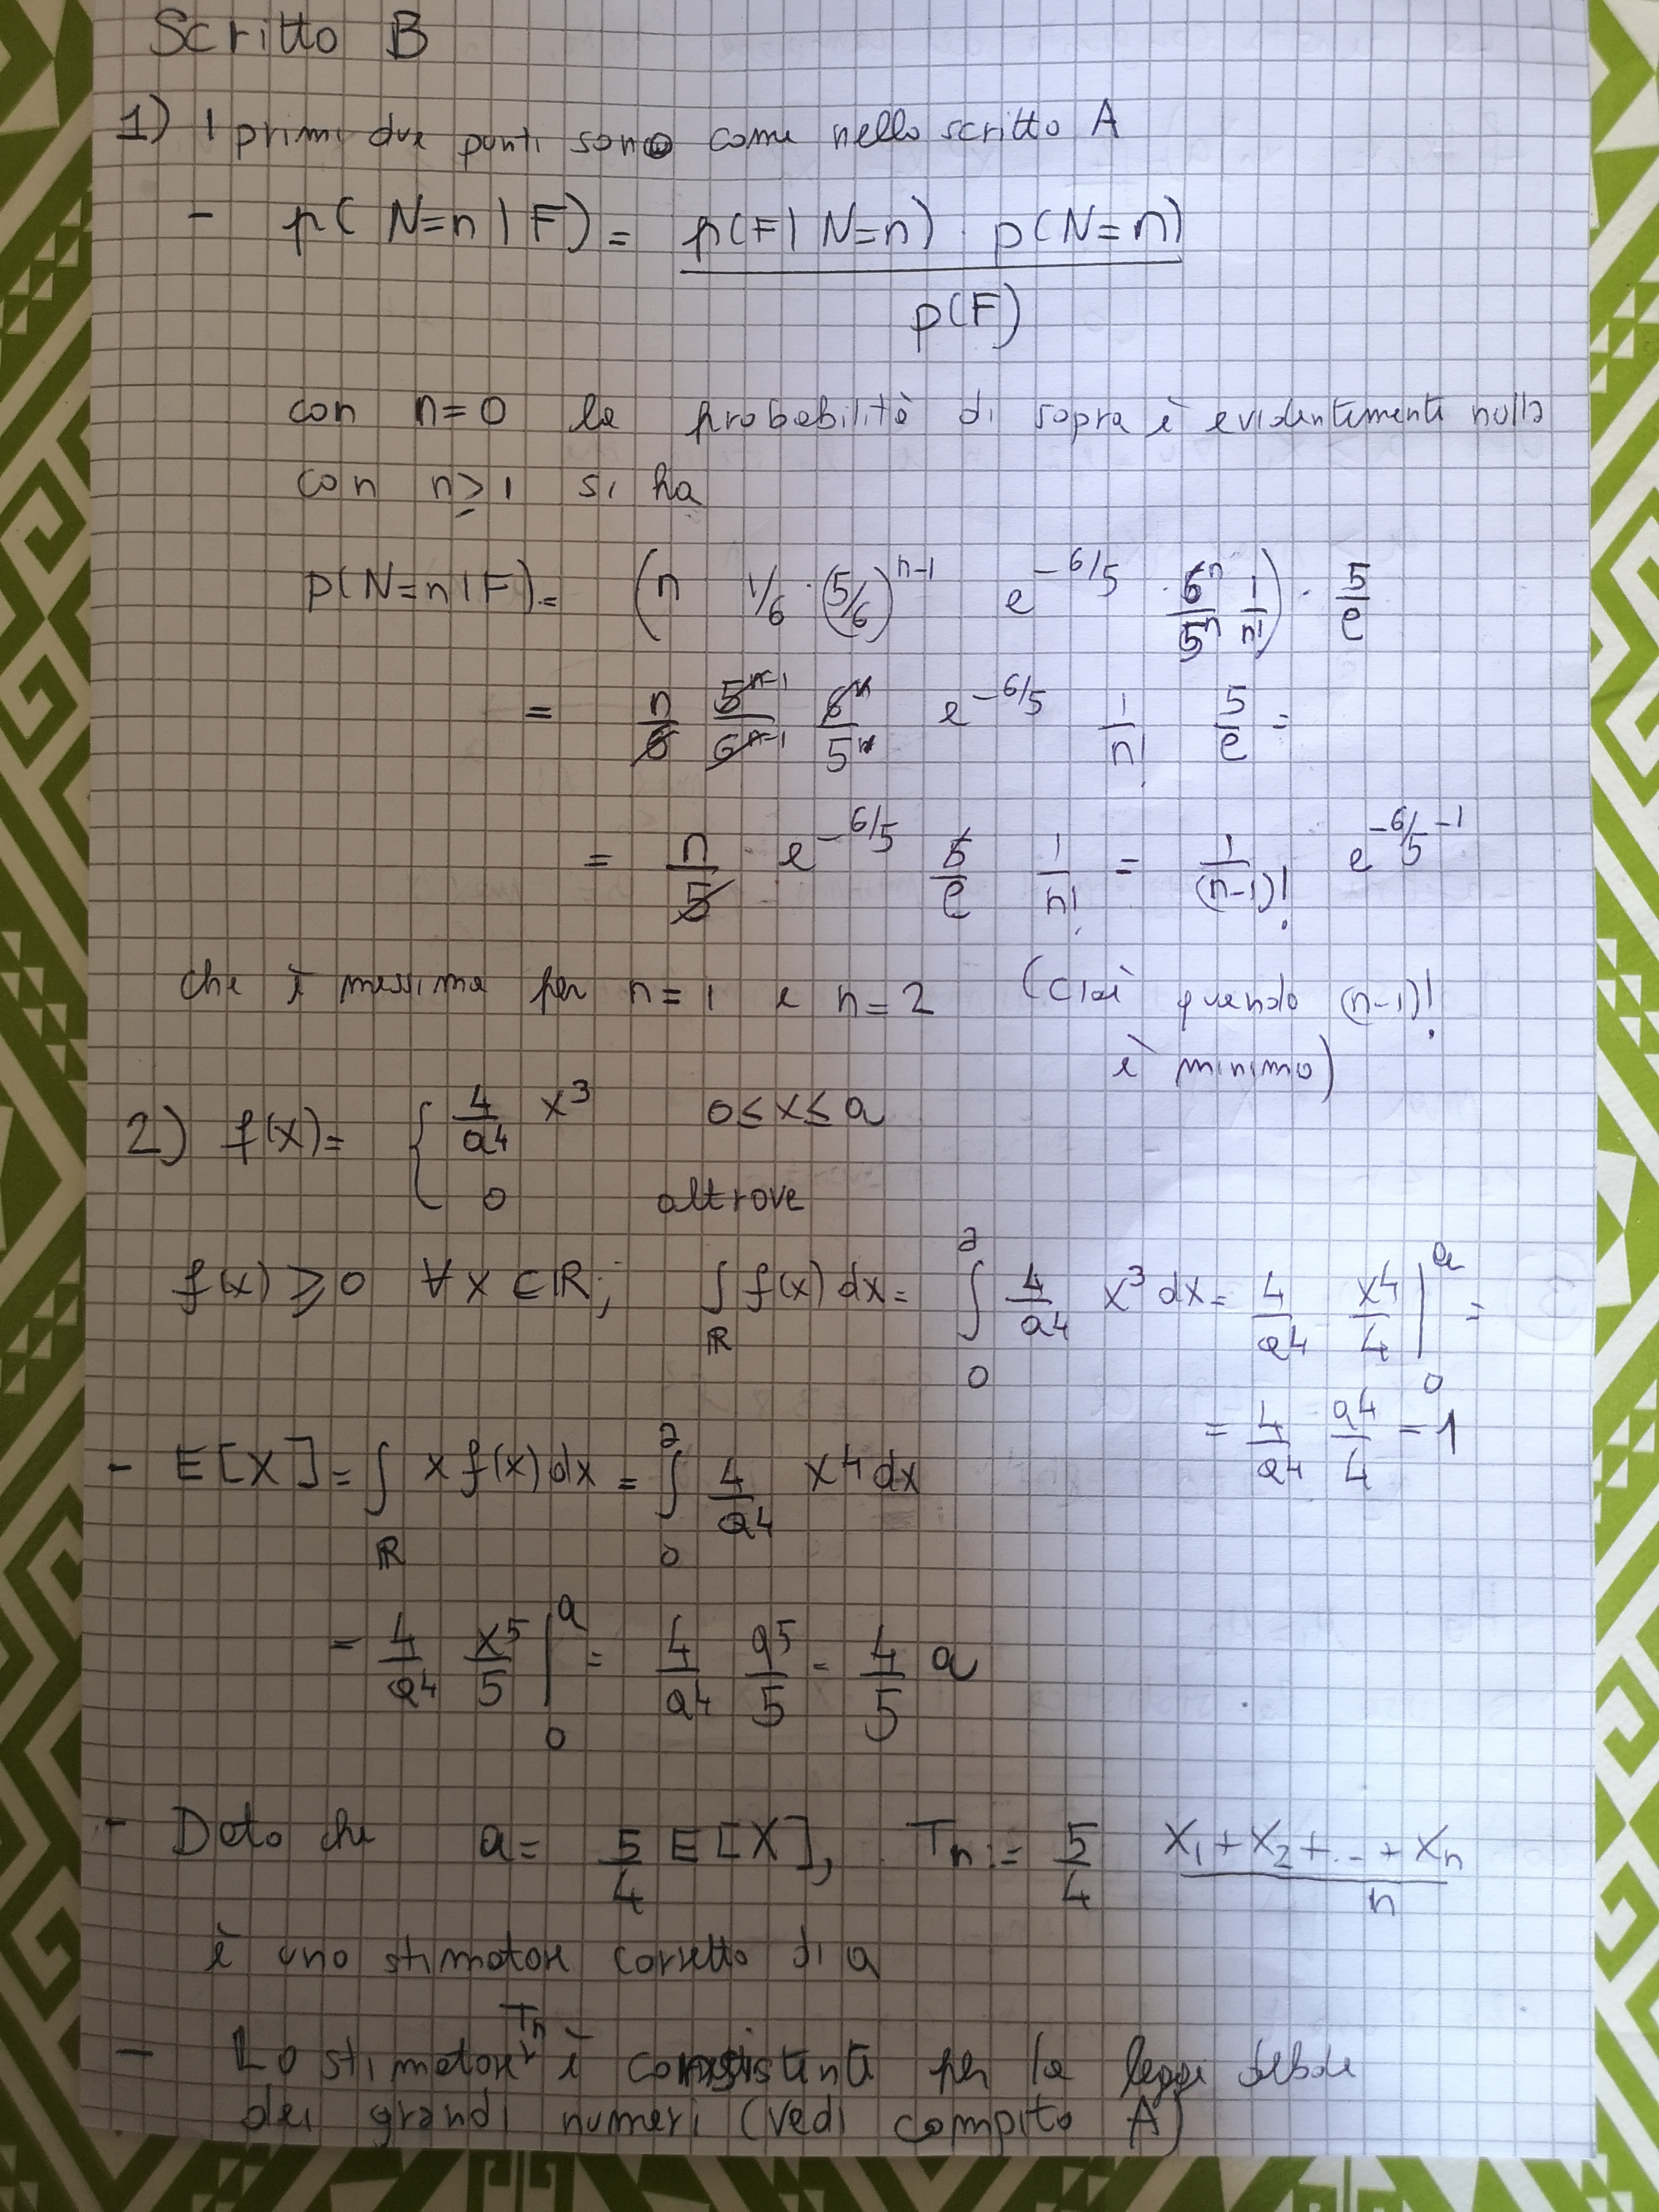 Scritto B
1) I primi due punti sono come nello scritto A
- p(N=n | F) = p(F | N=n) · p(N=n) / p(F)
con n=0 la probabilità di sopra è evidentemente nulla
con n≥1 si ha
p(N=n | F) = (n 1/6 · (5/6)^{n-1} e^{-6/5} · 6^n/5^n 1/n!) · 5/e
= n/6 5^{n-1}/6^{n-1} 6^n/5^n e^{-6/5} 1/n! 5/e =
= n/5 · e^{-6/5} 5/e 1/n! = 1/(n-1)! e^{-6/5-1}
che è massima per n=1 e n=2 (cioè quando (n-1)!
è minimo)
2) f(x) = { 4/a^4 x^3 0≤x≤a
0 altrove
f(x) ≥ 0 ∀x∈ℝ; ∫_ℝ f(x) dx = ∫_0^a 4/a^4 x^3 dx = 4/a^4 x^4/4 |_0^a =
= 4/a^4 a^4/4 = 1
- E[X] = ∫_ℝ x f(x) dx = ∫_0^a 4/a^4 x^4 dx
= 4/a^4 x^5/5 |_0^a = 4/a^4 a^5/5 = 4/5 a
- Dato che a = 5/4 E[X], T_n := 5/4 (X_1 + X_2 + ... + X_n)/n
è uno stimatore corretto di a
- Lo stimatore T_n è consistente per la legge debole
dei grandi numeri (vedi compito A)